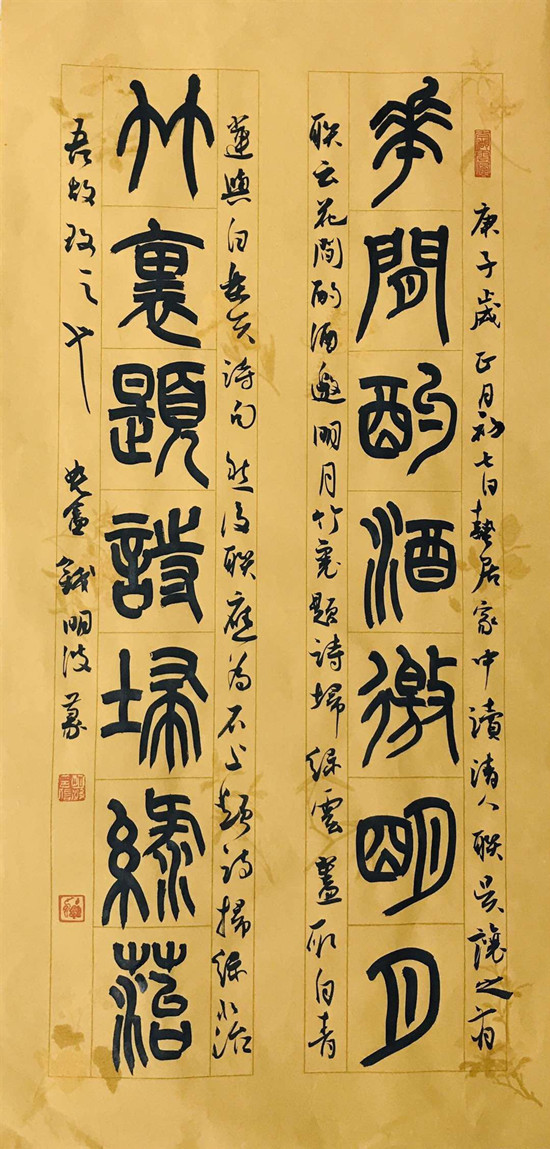 庚子歲正月初七日蟄居家中讀清人聯吳讓之有
華間酌酒徼明月
聯云花間酌酒邀明月竹裏題詩掃綠雲蓋取自青
蓮與白居易詩句然後聯應為石上題詩掃綠菭
竹裏題詩埽綠菭
吾故改之也 錢明波篆